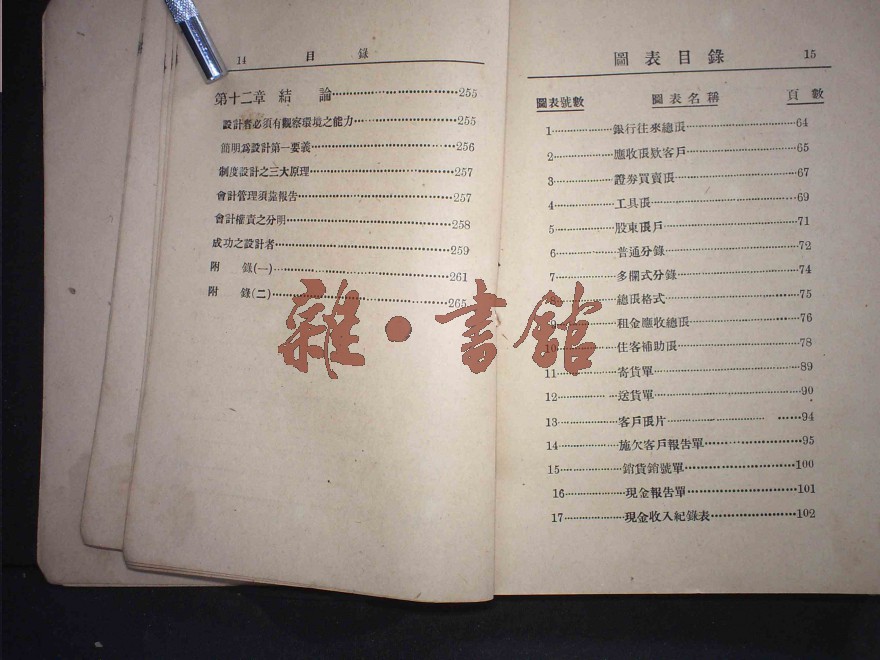 14 目 錄
第十二章 結 論 255
設計者必須有觀察環境之能力 255
簡明為設計第一要義 256
制度設計之三大原理 257
會計管理須靠報告 257
會計權責之分明 258
成功之設計者 259
附 錄(一) 261
附 錄(二) 265
圖表目錄 15
圖表號數 圖表名稱 頁數
1 銀行往來總賬 64
2 應收賬欵客戶 65
3 證券買賣賬 67
4 工具賬 69
5 股東賬戶 71
6 普通分錄 72
7 多欄式分錄 74
8 總賬格式 75
9 租金應收總賬 76
10 住客補助賬 78
11 寄貨單 89
12 送貨單 90
13 客戶賬片 94
14 施欠客戶報告單 95
15 銷貨銷號單 100
16 現金報告單 101
17 現金收入紀錄表 102
雜·書館